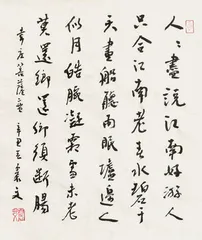 人〻盡說江南好游人
只合江南老春水碧于
天畫船聽雨眠壚邊人
似月皓腕凝霜雪未老
莫還鄉還鄉須斷腸
韋莊菩薩蠻 辛丑